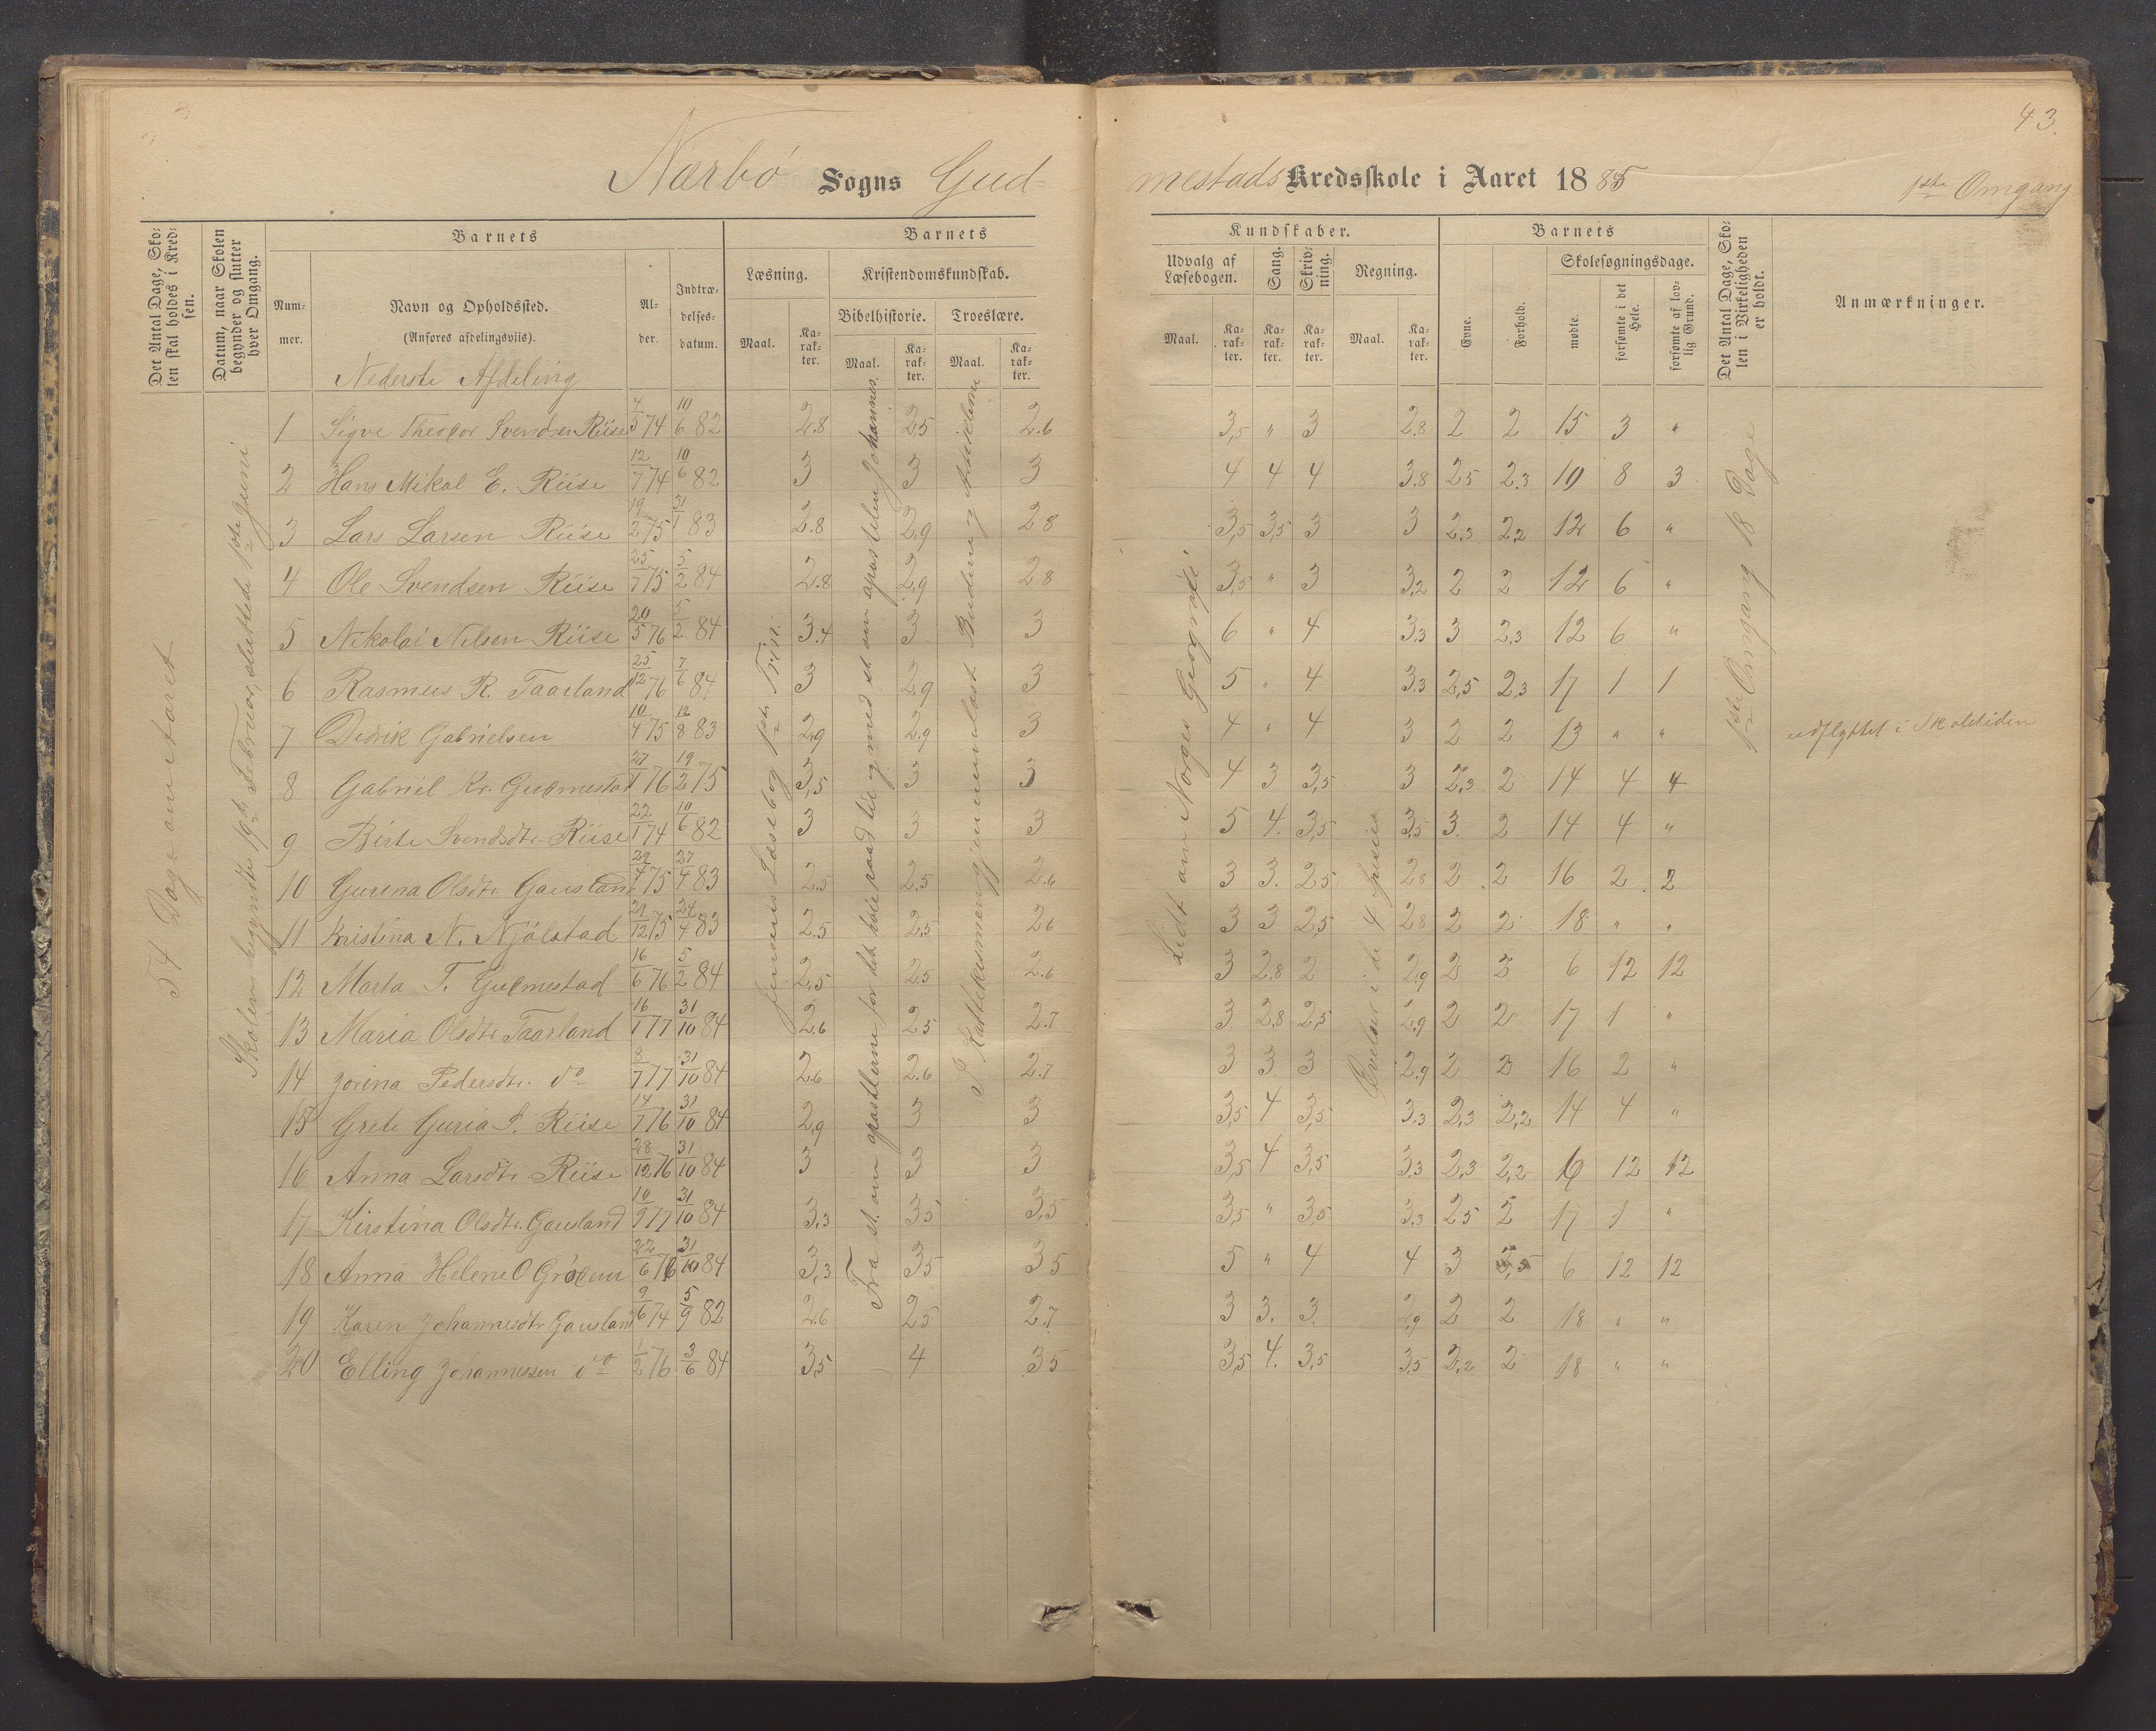 43.
Nærbø Sogns Gud-
mestads Kredsskole i Aaret 1885
1ste Omgang
Det Antal Dage, Skolen skal holdes i Kredsen.
Datum, naar Skolen begynder og slutter hver Omgang.
Barnets
Nummer.
Navn og Opholdssted.
(Anføres afdelingsviis).
Alder.
Indtrædelsesdatum.
Barnets
Læsning.
Maal.
Karakter.
Kristendomskundskab.
Bibelhistorie.
Maal.
Karakter.
Troeslære.
Maal.
Karakter.
Kundskaber.
Udvalg af Læsebogen.
Maal.
Karakter.
Sang.
Karakter.
Skrivning.
Karakter.
Regning.
Maal.
Karakter.
Barnets
Evne.
Forhold.
Skolesøgningsdage.
mødte.
forsømte i det Hele.
forsømte af lovlig Grund.
Det Antal Dage, Skolen i Virkeligheden er holdt.
Anmærkninger.
Nederste Afdeling
54 Dage om Aaret
Skolen begyndte 19de Februar, sluttede 1ste Juni
Jensens Læsebog 1ste Trin.
Fra st. om apostlerne for det høie raad til og med st. om apostelen Johannes.
P. Katekismen gjennemlæst Budene og Artiklerne
Lidt om Norges Geografi.
Øvelser i de 4 Species
1ste Omgang 18 Dage
1 Sigve Theodor Svendsen Riise 4/5 74 10/6 82 2.8 2,5 2.6 3,5 " 3 2.8 2 2 15 3 "
2 Hans Mikal E. Riise 12/7 74 10/6 82 3 3 3 4 4 4 3.8 2,5 2.3 10 8 3
3 Lars Larsen Riise 19/2 75 31/1 83 2.8 2,9 2,8 3,5 3,5 3 3 2.3 2,2 12 6 "
4 Ole Svendsen Riise 25/7 75 5/2 84 2.8 2,9 2,8 3,5 " 3 3,2 2 2 12 6 "
5 Nikolai Nilsen Riise 20/5 76 5/2 84 3.4 3 3 6 " 4 3.3 3 2.3 12 6 "
6 Rasmus R. Taarland 25/12 76 7/6 84 3 2,9 3 5 " 4 3.3 2,5 2,3 17 1 1
7 Didrik Gabrielsen 10/4 75 12/8 83 2,9 2,9 3 4 " 4 3 2 2 13 " " udflyttet i Skoletiden
8 Gabriel Kr. Gudmestad 27/1 76 19/2 75 3,5 3 3 4 3 3,5 3 2,3 2 14 4 4
9 Birte Svendsdtr. Riise 22/1 74 10/6 82 3 3 3 5 4. 3,5 3,5 3. 2 14 4 "
10 Gurina Olsdtr. Gausland 29/4 75 27/4 83 2.5 2.5 2.6 3 3. 2,5 2,8 2 2 16 2 2
11 Kristina N. Njølstad 29/12 75 24/4 83 2.5 2,5 2,6 3 3 2,5 2,8 2 2 18 " "
12 Marta T. Gudmestad 16/6 76 5/2 84 2,5 2,5 2.6 3 2.8 2 2,9 2 2 6 12 12
13 Maria Olsdtr. Taarland 16/1 77 31/10 84 2,6 2,5 2.7 3 2.8 2,5 2,9 2 2 17 1 "
14 Jorina Pedersdtr. do 8/7 77 31/10 84 2.6 2.6 2.7 3 3. 3 2,9 2 2 16 2 "
15 Grete Guria S. Riise 14/7 76 31/10 84 2,9 3 3 3,5 4 3,5 3.3 2,3 2,2 14 4 "
16 Anna Larsdtr Riise 28/12 76 31/10 84 3 3 3 3,5 4 3,5 3.3 2,3 2,2 6 12 12
17 Kirstina Olsdtr. Gausland 10/9 77 31/10 84 3,3 3,5 3,5 3,5 " 3,5 3.3 2,5 2 17 1 "
18 Anna Helene O Grødem 22/6 76 31/10 84 3,3 3,5 3,5 5 " 4 4 3 6 12 12
19 Karen Johannesdtr Gausland 9/6 74 5/9 82 2.6 2,5 2.7 3 3. 3. 2,9 2 2 18 " "
20 Elling Johannessen do 1/2 76 3/6 84 3,5 4 3,5 3,5 4. 3,5 3,5 2,2 2 18 " "